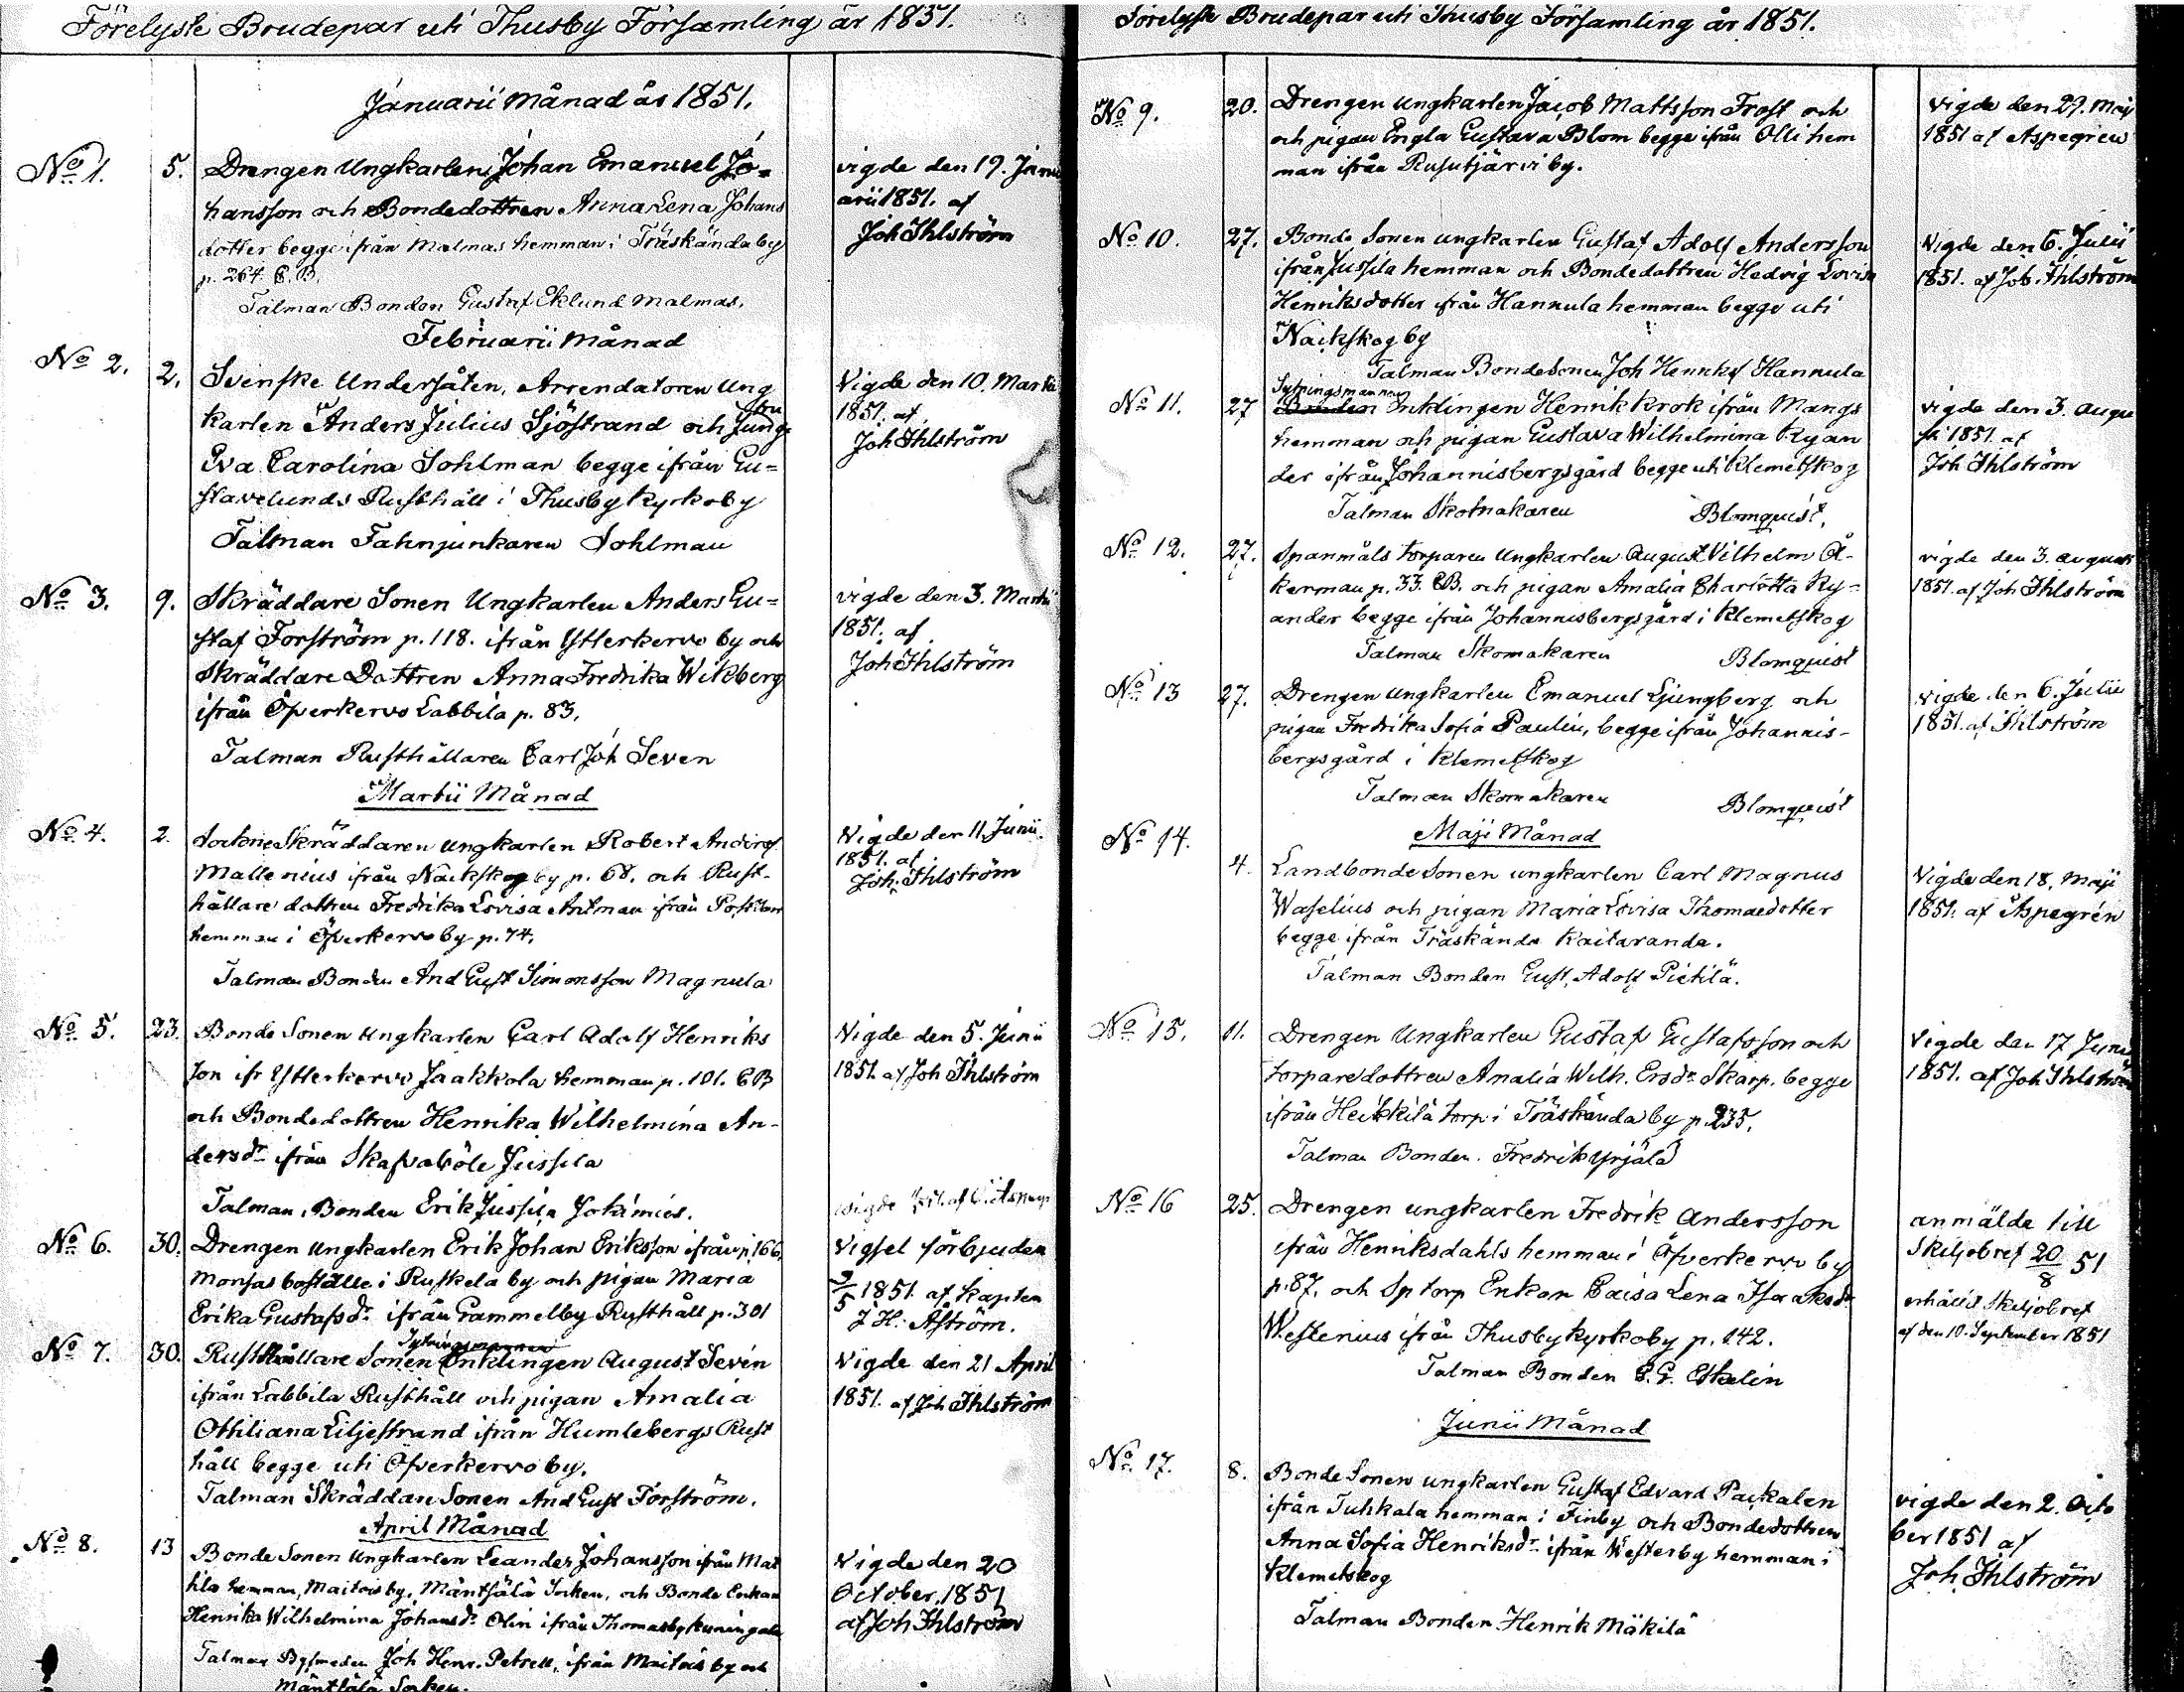 Förelyste Brudepar uti Thusby Församling år 1851.
Januarii Månad år 1851.
No 1. 5. Drengen Ungkarlen Johan Emanuel Jo-
hansson och Bondedottren Anna Lena Johans
dotter begge ifrån Malmas hemman i Träskända by
p. 264 C.B.
Talman Bonden Gustaf Eklund Malmas.
vigde den 19. Janu
arii 1851. af
Joh Ihlström
Februarii Månad
No 2. 2. Svenske Undersåten, Arrendatoren Ung
karlen Anders Julius Sjöstrand och Jung
fru
Eva Carolina Sohlman begge ifrån Gu-
stavelunds Rusthåll i Thusby Kyrkoby
Talman Fahnjunkaren Sohlman
Vigde den 10. Martii
1851. af
Joh Ihlström
No 3. 9. Skräddare Sonen Ungkarlen Anders Gu-
staf Forström p. 118. ifrån Ytterkervo by och
Skräddare Dottren Anna Fredrika Wikberg
ifrån Öfverkervo Labbila p. 83.
Talman Rusthållaren Carl Joh Seven
vigde den 3. Martii
1851. af
Joh Ihlström
Martii Månad
No 4. 2. Sockne Skräddaren ungkarlen Robert
Mallenius ifrån Nackskog by p. 68. och Rust-
hållare dottren Fredrika Lovisa Antman ifrån
hemman i Öfverkervo by p. 74.
Talman Bonden And Gust Simonsson Magnula
Vigde den 11. Junii.
1851. af
Joh. Ihlström
No 5. 23. Bonde Sonen Ungkarlen Carl Adolf Henriks
son ifr Ytterkervo Jaakkola hemman p. 101. C B
och Bondedottren Henrika Wilhelmina An-
dersdr ifrån Skafvaböle Jussila
Talman, Bonden Erik Jussila
Vigde den 5. Junii
1851. af Joh Ihlström
No 6. 30. Drengen Ungkarlen Erik Johan Eriksson ifrån p. 166
Monsas boställe i Ruskela by och pigan Maria
Erika Gustafsdr. ifrån Gammelby Rusthåll p. 301
Vigsel förbjuden
9/5 1851. af Kapten
J H. Åström.
No 7. 30. Rusthållare Sonen Enklingen August Sevén
Sytningsmannen
ifrån Labbila Rusthåll och pigan Amalia
Othiliana Liljestrand ifrån Humlebergs Rust
håll begge uti Öfverkervo by.
Talman Skräddare Sonen And Gust Forström.
Vigde den 21 April
1851. af Joh Ihlström
April Månad
No 8. 13 Bonde Sonen Ungkarlen Leander Johansson ifrån Mat
tila hemman, Maitois by, Mäntsälä Socken, och Bonde Enkan
Henrika Wilhelmina Johansdr. Olin ifrån Thomasby Kuningala
Talman Joh Henr. Petrell, ifrån Maitois by och
Mäntsälä Socken.
Vigde den 20
October, 1851
af Joh Ihlström
Förelyste Brudepar uti Thusby Församling år 1851.
No 9. 20. Drengen Ungkarlen Jacob Mattsson Frost och
och pigan Engla Gustava Blom begge ifrån Olli hem
man ifrån Rusutjärvi by.
Vigde den 29. Maji
1851 af Aspegren
No 10. 27. Bonde Sonen ungkarlen Gustaf Adolf Andersson
ifrån Jussila hemman och Bondedottren Hedvig Lovisa
Henriksdotter ifrån Hannula hemman begge uti
Nackskog by
Talman Bondesonen Joh Henriks Hannula
Vigde den 6. Julii
1851. af Joh. Ihlström
Sytningsmannen
No 11. 27 Bonden Enklingen Henrik Krok ifrån Mangs
hemman och pigan Gustava Wilhelmina Kyan
der ifrån Johannisbergsgård begge uti Klemetskog
Talman Skomakaren Blomquist.
vigde den 3. Augu
sti 1851. af
Joh Ihlström
No 12. 27. Spanmåls torparen Ungkarlen August Vilhelm Å-
kerman p. 33. CB. och pigan Amalia Charlotta Ky-
ander begge ifrån Johannisbergsgård i Klemetskog
Talman Skomakaren Blomquist
vigde den 3. August
1851. af Joh Ihlström
No 13 27. Drengen Ungkarlen Emanuel Ljungberg och
pigan Fredrika Sofia Paulin, begge ifrån Johannis-
bergsgård i Klemetskog
Talman Skomakaren Blomquist
vigde den 6. Julii
1851. af Ihlström
Maji Månad
No 14. 4. Landbonde Sonen ungkarlen Carl Magnus
Waselius och pigan Maria Lovisa Thomasdotter
begge ifrån Träskända Kaitaranda.
Talman Bonden Gust. Adolf Pietilä.
Vigde den 18. Maji
1851. af Aspegrén
No 15. 11. Drengen Ungkarlen Gustaf Gustafsson och
torpare dottren Amalia Wilh. Ersdr Skarp. begge
ifrån Heikkilä torp i Träskända by p. 235.
Talman Bonden. Fredrik Yrjälä
Vigde den 17 Junii
1851. af Joh Ihlström
No 16 25. Drengen ungkarlen Fredrik Andersson
ifrån Henriksdahls hemman i Öfverkervo by
p. 87. och Sp torp Enkan Caisa Lena Isaaksdr
Westenius ifrån Thusby Kyrkoby p. 142.
Talman Bonden C. G. Eskelin
anmälde till
Skiljobref 20/8 51
erhållit Skiljobref
af den 10. September 1851
Junii Månad
No 17. 8. Bonde Sonen ungkarlen Gustaf Edvard Packalen
ifrån Tuhkala hemman i Finby och Bondedottren
Anna Sofia Henriksdr ifrån Westerby hemman i
Klemetskog
Talman Bonden Henrik Mäkilä
vigde den 2. Octo
ber 1851 af
Joh. Ihlström